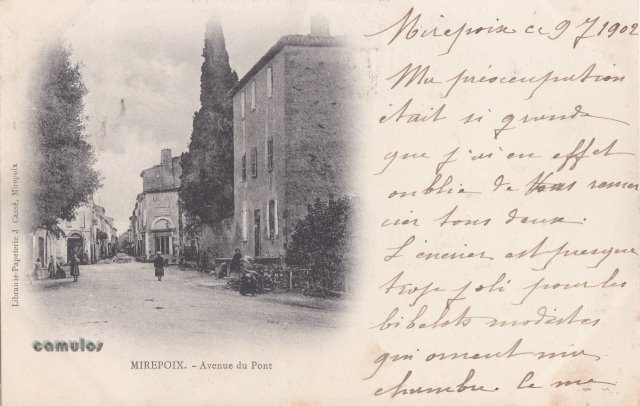 Mirepoix ce 9 7 1902
Ma préoccupation
était si grande
que j'ai en effet
oublié de vous remer
cier tous deux.
L'encrier est presque
trop joli pour les
bibelots modestes
qui ornent ma
chambre. Je me
Librairie-Papeterie J. Gassé, Mirepoix
camulos
MIREPOIX. - Avenue du Pont